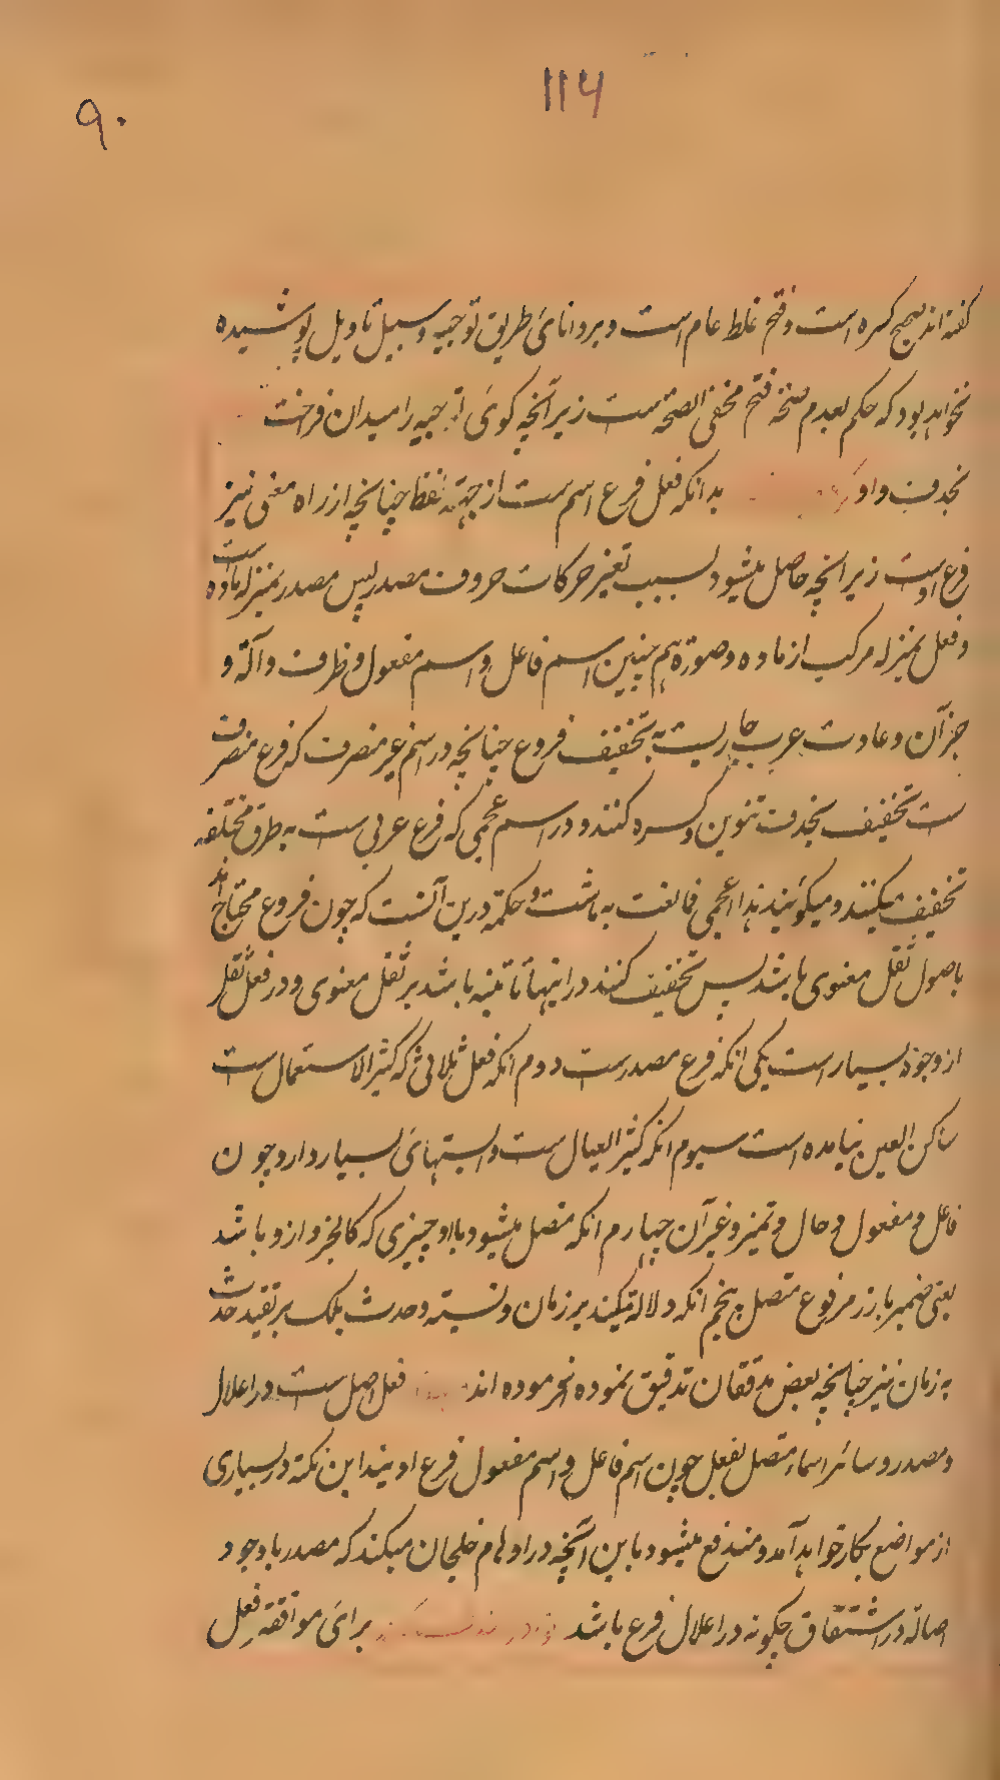 ۱۱۴
۹۰
گفته‌اند صحیح کسره است و فتح غلط عام است و بر دانای طریق توجیه و سبیل تاویل پوشیده
نخواهد بود که حکم بعدم صحة فتح مخفی الصحة ست زیرانچه کوی توجیه را میدان فراخت
بحذف واو بدانکه فعل فرع اسم ست از جهة لفظ چنانچه از راه معنی نیز
فرع اوست زیرانچه حاصل میشود بسبب تغیر حرکات حروف مصدر پس مصدر بمنزله ماده است
و فعل بمنزله مرکب از ماده و صورة همچنین اسم فاعل و اسم مفعول و ظرف و آلة و
جز آن و عادت عرب جاریست به تخفیف فروع چنانچه در اسم غیر منصرف که فرع منصرف
ست تخفیف بحذف تنوین و کسره کنند و در اسم عجمی که فرع عربی ست به طرق مختلفه
تخفیف میکنند و میکویند هذا اعجمی فالعب به ما شئت و حکمة درین آنست که چون فروع محتاج اند
باصول ثقل معنوی باشد پس تخفیف کنند در اینها تا تنبه باشد بر ثقل معنوی و در فعل ثقل
از وجوه بسیار است یکی انکه فرع مصدرست دوم انکه فعل ثلاثی که کثیر الاستعمال ست
ساکن العین نیامده است سیوم انکه کثیر العیال ست و بستهای بسیار دارد چون
فاعل و مفعول و حال و تمیز و غیر آن چهارم انکه متصل میشود با او چیزی که کالجزو ازو باشد
یعنی ضمیر بارز مرفوع متصل پنجم انکه دلالة میکند بر زمان و نسبة و حدث بلک بر تقید حدث
به زمان نیز چنانچه بعض مدققان تدقیق نموده فرموده اند فعل اصل ست در اعلال
و مصدر و سائر اسماء متصل بفعل چون اسم فاعل و اسم مفعول فرع اویند این نکته در بسیاری
از مواضع بکار خواهد آمد و مندفع میشود باین آنچه در اوهام خلجان میکند که مصدر باوجود
اصالة در اشتقاق چکونه در اعلال فرع باشد برای موافقة فعل